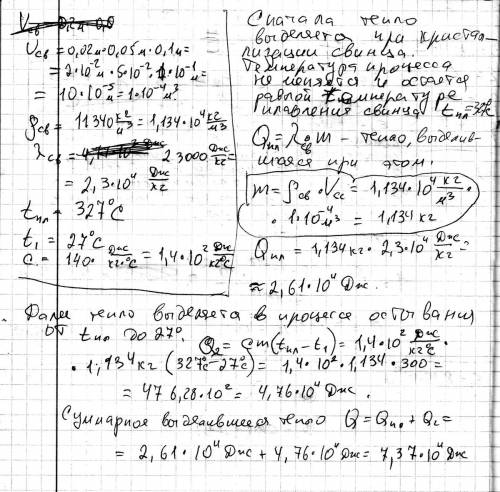 Vсв = 0,02м·0,05м·0,1м=
= 2·10⁻²м·5·10⁻²·1·10⁻¹м=
= 10·10⁻⁵м=1·10⁻⁴м³
ρсв = 11340 кг/м³ = 1,134·10⁴ кг/м³
λсв = 23000 Дж/кг =
= 2,3·10⁴ Дж/кг
tпл = 327°C
t₁ = 27°C
c = 140 Дж/кг·°C = 1,4·10² Дж/кг°C
Сначала тепло
выделяется при кристал-
лизации свинца.
Температура процесса
не меняется и остается
равной температуре
плавления свинца tпл=327°
Qпл = λсв m - тепло, выделив-
шаяся при этом.
m = ρсв·Vсс = 1,134·10⁴ кг/м³·
· 1·10⁻⁴м³ = 1,134 кг
Qпл = 1,134 кг · 2,3·10⁴ Дж/кг =
≈ 2,61·10⁴ Дж.
Далее тепло выделяется в процессе остывания
от tпл до 27°. Q₂ = cm(tпл-t₁) = 1,4·10² Дж/кг°C ·
· 1,134 кг (327°C-27°C) = 1,4·10²·1,134·300 =
= 476,28·10² = 4,76·10⁴ Дж.
Суммарное выделившееся тепло Q = Qпл + Q₂ =
= 2,61·10⁴ Дж + 4,76·10⁴ Дж = 7,37·10⁴ Дж